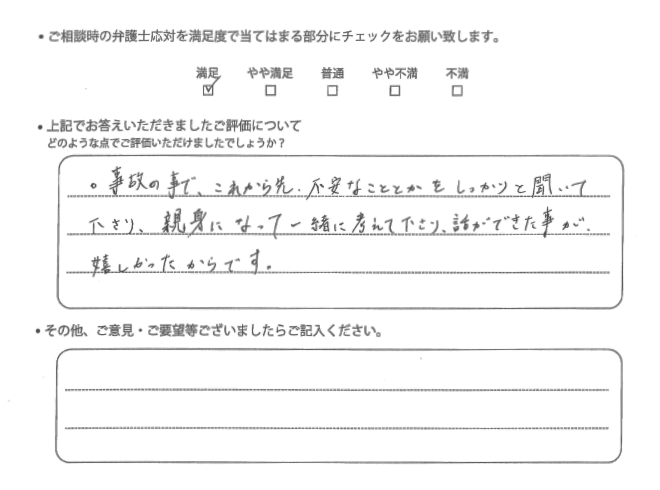 • ご相談時の弁護士応対を満足度で当てはまる部分にチェックをお願い致します。
満足 やや満足 普通 やや不満 不満
• 上記でお答えいただきましたご評価について
どのような点でご評価いただけましたでしょうか？
。事故の事で、これから先、不安なこととかをしっかりと聞いて
下さり、親身になって一緒に考えて下さり、話ができた事が、
嬉しかったからです。
• その他、ご意見・ご要望等ございましたらご記入ください。